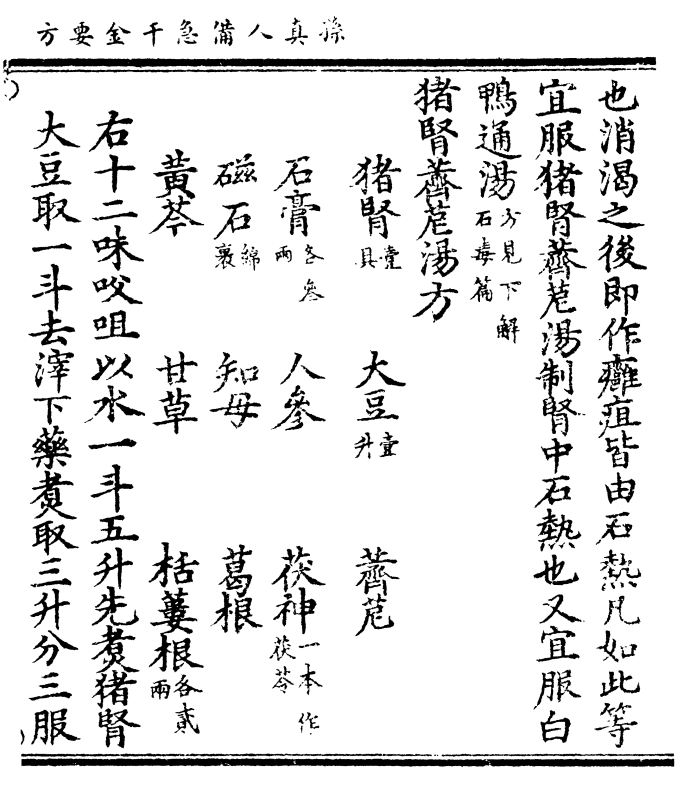 孫真人備急千金要方
也消渴之後即作癰疽皆由石熱凡如此等
宜服猪腎薺苨湯制腎中石熱也又宜服白
鴨通湯方見下解石毒篇
猪腎薺苨湯方
猪腎壹具 大豆壹升 薺苨
石膏各參兩 人參 茯神一本作茯苓
磁石綿裹 知母 葛根
黃芩 甘草 栝蔞根各貳兩
右十二味㕮咀以水一斗五升先煮猪腎
大豆取一斗去滓下藥煮取三升分三服